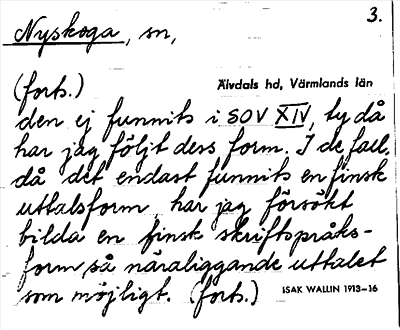 3.
Nyskoga, sn,
(forts.) Älvdals hd, Värmlands län
den ej funnits i SOV XIV, ty då
har jag följt dess form. I de fall,
då det endast funnits en finsk
uttalsform, har jag försökt
bilda en finsk skriftspråks-
form så näraliggande uttalet
som möjligt. (forts.) ISAK WALLIN 1913–16